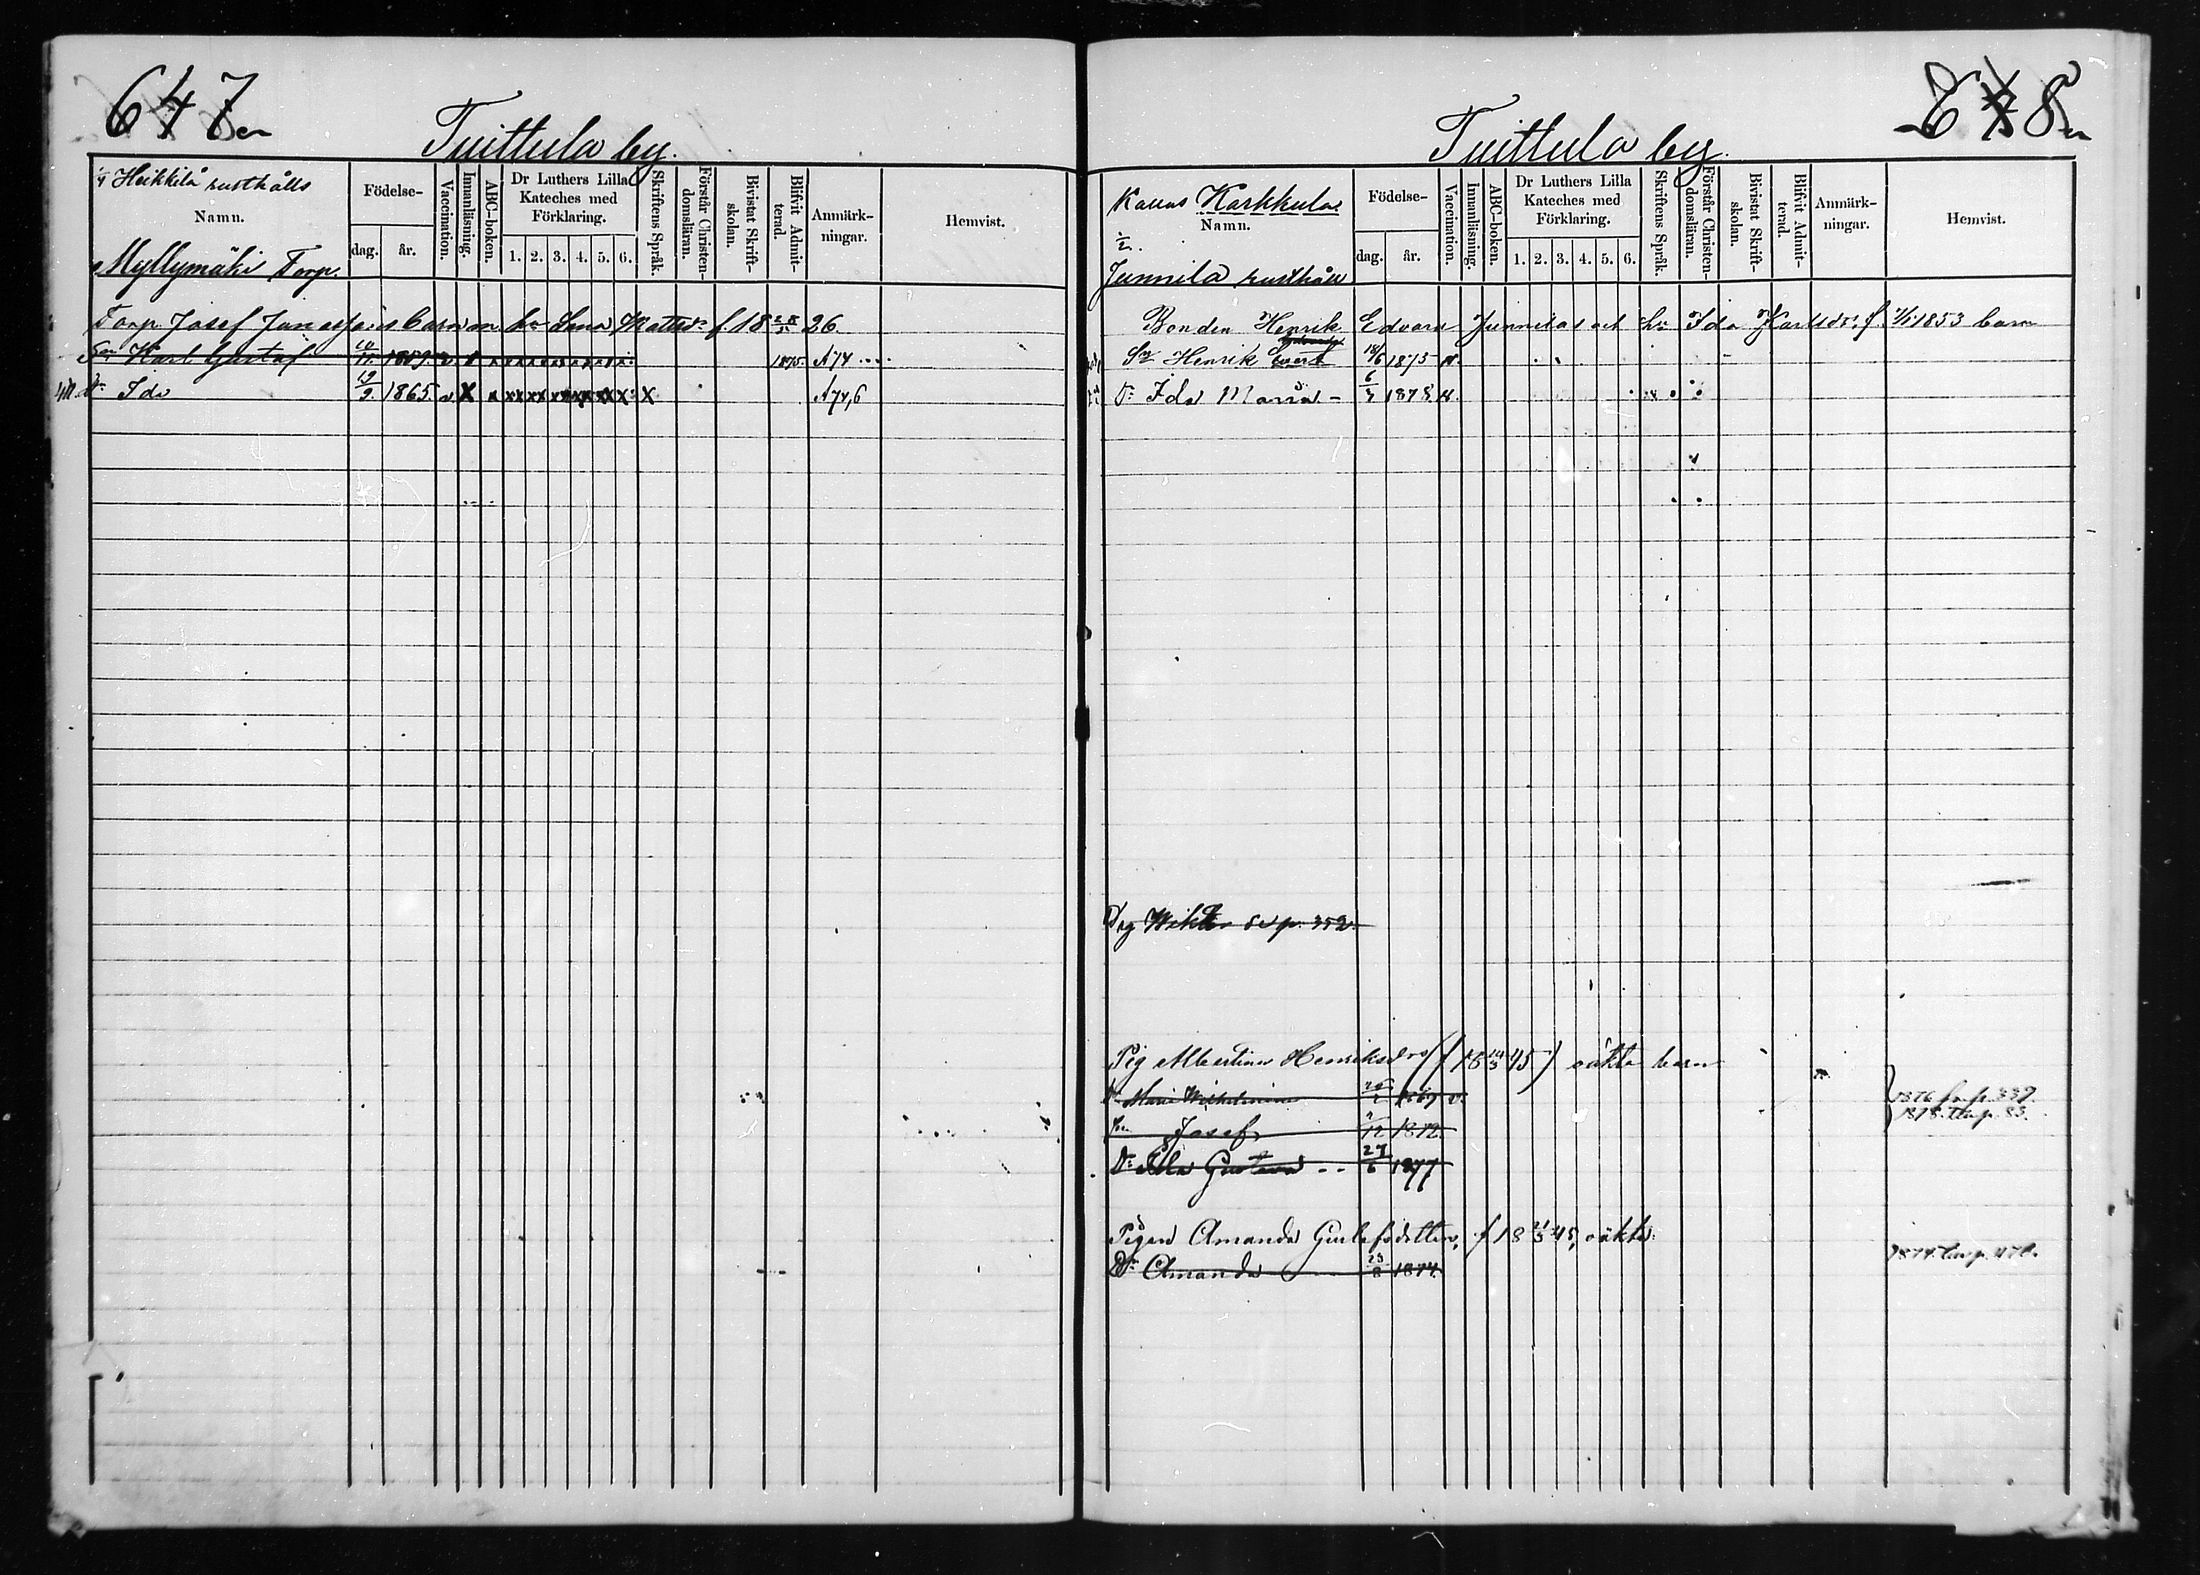 647
Tuittula by.
1/4 Heikkilä rusthålls
Namn.
Myllymäki Torp.
Födelse-
dag. år.
Vaccination.
Innanläsning.
ABC-boken.
Dr Luthers Lilla
Kateches med
Förklaring.
1. 2. 3. 4. 5. 6.
Skriftens Språk.
Förstår Christen-
domsläran.
Bivistat Skrift-
skolan.
Blifvit Admit-
terad.
Anmärk-
ningar.
Hemvist.
Torp. Josef barn m. hu Lena Mattsdr f. 18 28/3 26.
Son Karl Gustaf 1859 v. 1875. A74
Dr Ida 29/9 1865 v. X X A74,6
8
Tuittula by.
Karkkula
Namn.
1/2.
Junnila rusthåll
Födelse-
dag. år.
Vaccination.
Innanläsning.
ABC-boken.
Dr Luthers Lilla
Kateches med
Förklaring.
1. 2. 3. 4. 5. 6.
Skriftens Språk.
Förstår Christen-
domsläran.
Bivistat Skrift-
skolan.
Blifvit Admit-
terad.
Anmärk-
ningar.
Hemvist.
Bonden Henrik Edvard Junnilas och hu Ida Karlsdr, f. 1853 barn
Sn Henrik Evert 18/6 1875
Dr Ida Maria - 6/4 1878
Drg Wiktor se p. 352
Pig Albertina Henriksdrs (f 18 45) oäkta barn
Dr Maria Wilhelmina 1869 v.
Son Josef 12 1872.
Dr Ida Gustava - - 27/6 1877
1876 fr. p. 339.
1878. t. p. 83.
Pigan Amanda Gustafsdotters, f 18 45, oäkta.
Dr Amanda 23/8 1874.
1874. p. 478.